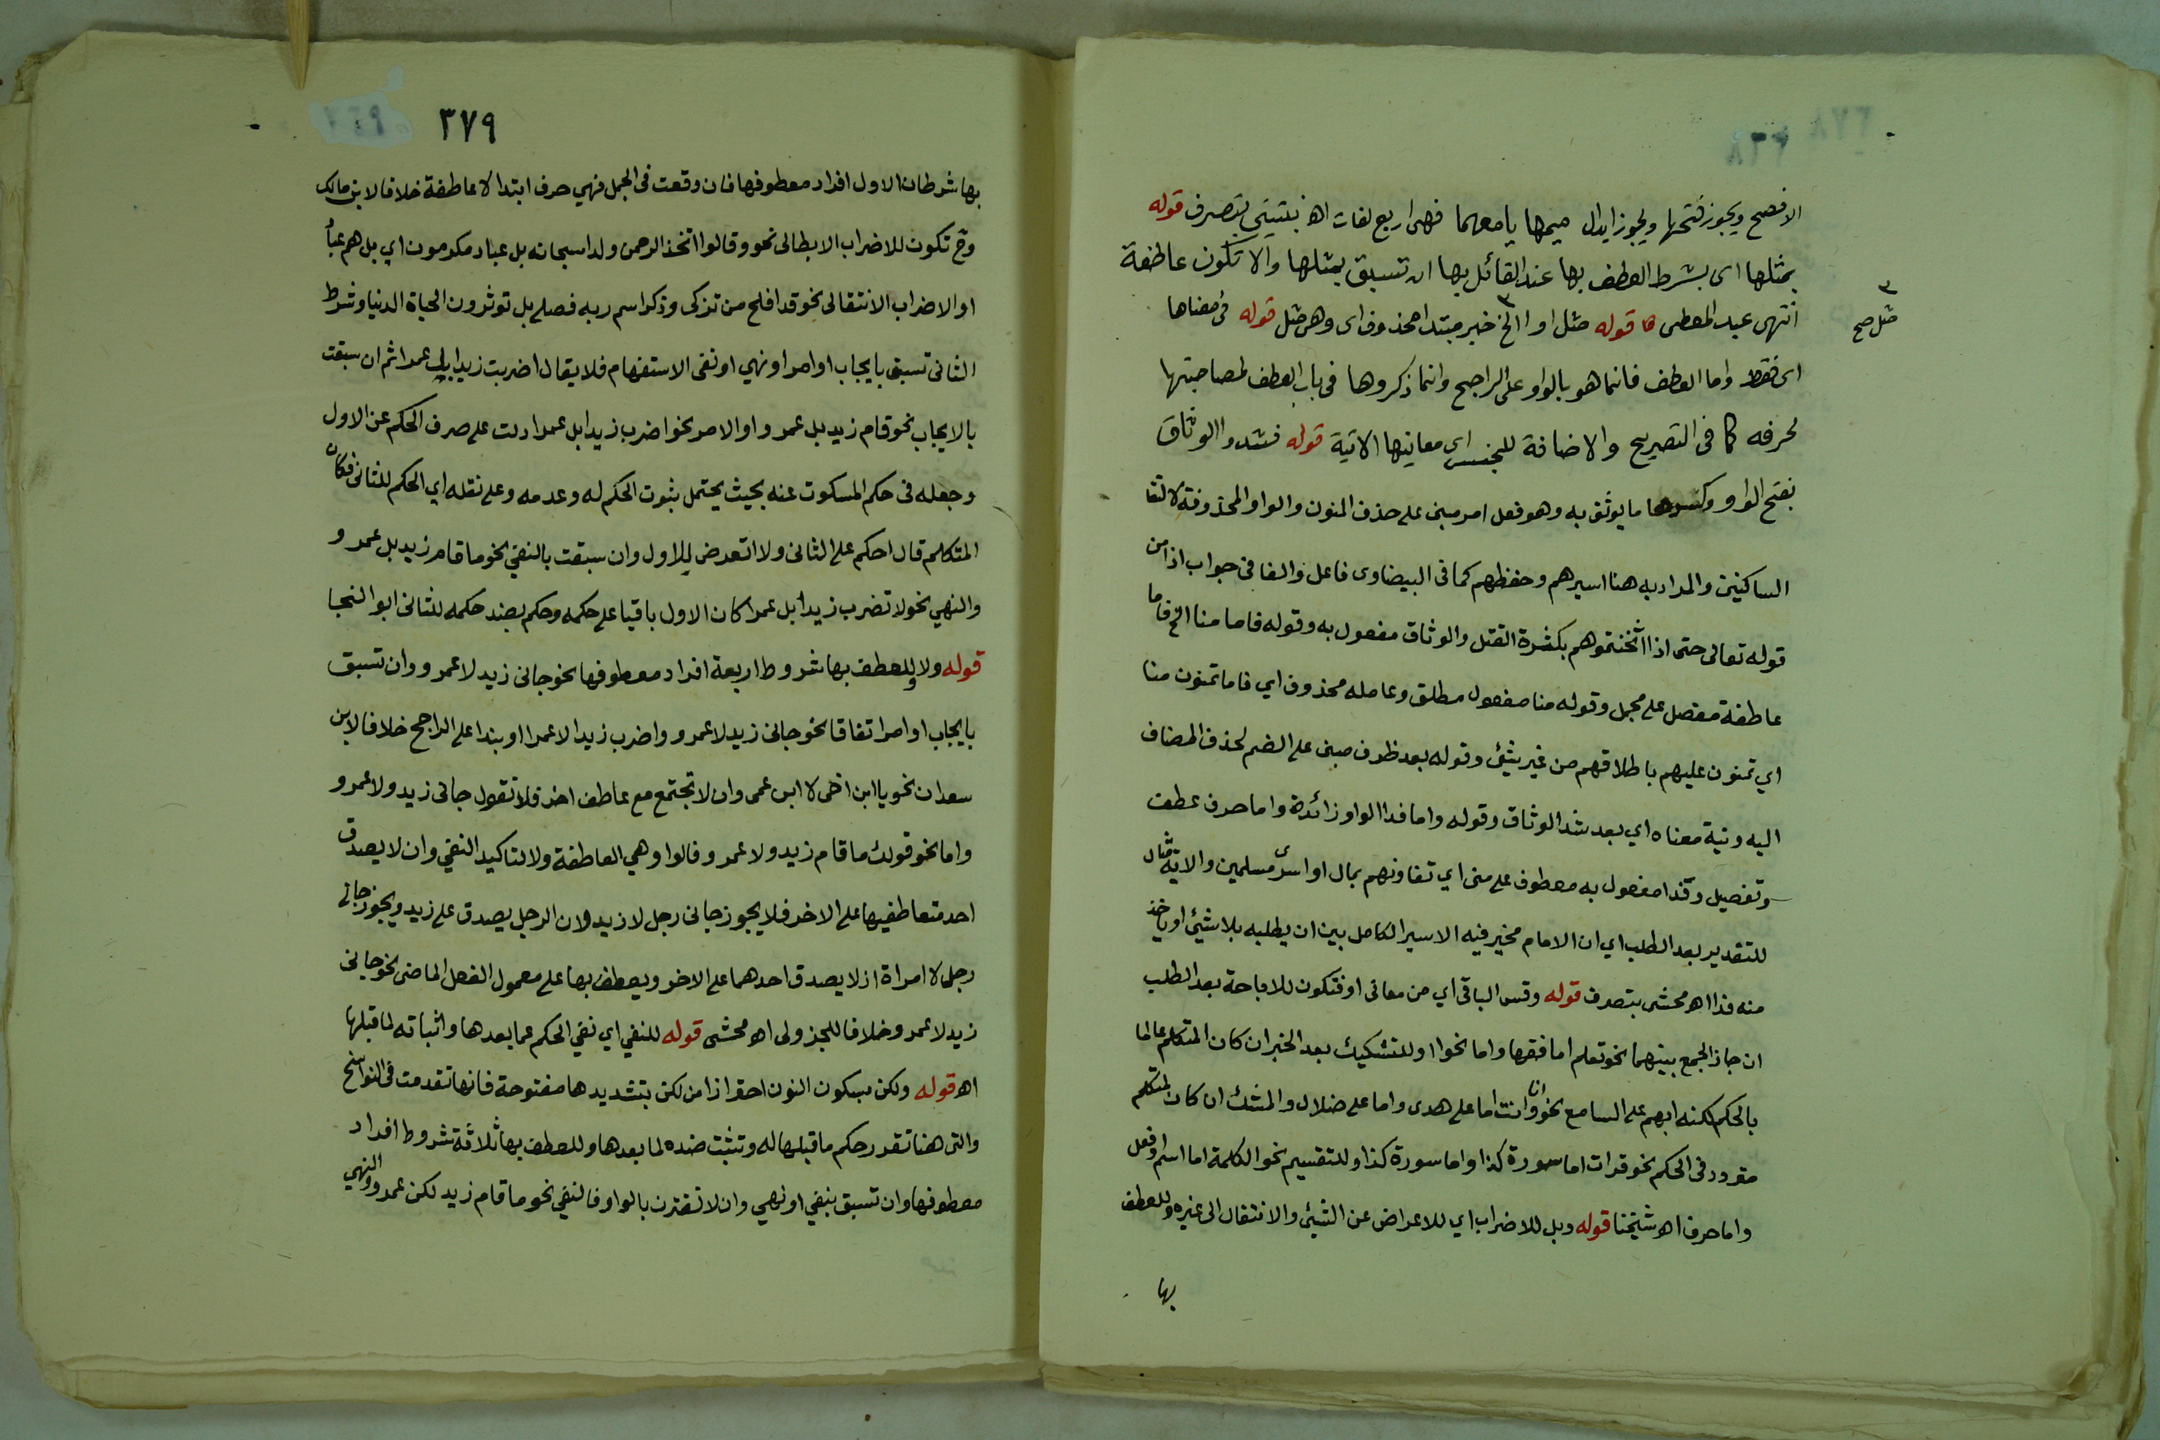 الافصح ويجوز فتحها ويجوز ابدال ميمها يا معهما فهى اربع لغات اهـ نبتيتي بتصرف قوله
بمثلها اى بشرط العطف بها عند القائل بها ان تسبق بمثلها والا تكون عاطفة
انتهى عبد المعطى قوله مثل او الخ خبر مبتدا محذوف اى وهى مثل قوله فى معناها
٣
مثل صح
اى فقط واما العطف فانما هو بالواو على الراجح وانما ذكروها فى باب العطف لمصاحبتها
لحرفه كما فى التصريح والاضافة للجنس اى معانيها الاتية قوله فشدوا الوثاق
بفتح الواو وكسرها ما يوثق به وهو فعل امر مبنى على حذف النون والواو المحذوفة لالتقا
الساكنين والمراد به هنا اسيرهم وحفظهم كما فى البيضاوى فاعل والفا فى جواب اذا من
قوله تعالى حتى اذا اثخنتموهم بكثرة القتل والوثاق مفعول به وقوله فاما منا الخ فاما
عاطفة مفصل على مجمل وقوله منا مفعول مطلق وعامله محذوف اي فاما تمنون منا
اي تمنون عليهم باطلاقهم من غير شيئ وقوله بعد ظرف مبنى على الضم لحذف المضاف
اليه ونية معناه اي بعد شد الوثاق وقوله واما فدا الواو زائدة واما حرف عطف
وتفصيل وفدا مفعول به معطوف على منى اي تفاونهم بمال او اسرى مسلمين والاية مثال
للتقدير بعد الطلب اي ان الامام مخير فيه الاسير الكامل بين ان يطلبه بلا شيئ او ياخذ
منه فدا اهـ محشى بتصرف قوله وقس الباقى اي من معانى او فتكون للاباحة بعد الطلب
ان جاز الجمع بينهما نحو تعلم اما فقها واما نحوا وللتشكيك بعد الخبر ان كان المتكلم عالما
بالحكم لكنه ابهم على السامع نحو انا وانت اما على هدى واما على ضلال والشك ان كان المتكلم
مترود فى الحكم نحو قرات اما سورة كذا واما سورة كذا وللتقسيم نحو الكلمة اما اسم او فعل
واما حرف اهـ شيخنا قوله وبل للاضراب اي للاعراض عن الشيئ والانتقال الى غيره وللعطف
بها
٣٧٩
بها شرطان الاول افراد معطوفها فان وقعت فى الجمل فهي حرف ابتدا لا عاطفة خلافا لابن مالك
وح تكون للاضراب الابطالى نحو وقالوا اتخذ الرحمن ولدا سبحانه بل عباد مكرمون اي بل هم عباد
او الاضراب الانتقالى نحو قد افلح من تزكى وذكر اسم ربه فصلى بل توثرون الحياة الدنيا وشرط
الثانى تسبق بايجاب او امر او نهي او نفى الاستفهام فلا يقال اضربت زيدا بل عمرا ثم ان سبقت
بالايجاب نحو قام زيد بل عمرو او الامر نحو اضرب زيدا بل عمرا دلت على صرف الحكم عن الاول
وجعله فى حكم المسكوت عنه بحيث يحتمل ثبوت الحكم له وعدمه وعلى نقله اي الحكم للثانى فكان
المتكلم قال احكم على الثانى ولا اتعرض للاول وان سبقت بالنفي نحو ما قام زيد بل عمرو
والنهي نحو لا تضرب زيدا بل عمرا كان الاول باقيا على حكمه وحكم بضد حكمه للثانى ابو النجا
قوله ولا وللعطف بها شروط اربعة افراد معطوفها نحو جانى زيد لا عمرو وان تسبق
بايجاب او امر اتفاقا نحو جانى زيد لا عمرو واضرب زيدا لا عمرا او بندا على الراجح خلافا لابن
سعدان نحو يا ابن اخى لا ابن عمى وان لا تجتمع مع عاطف اخر فلا تقول جانى زيد ولا عمرو
واما نحو قولك ما قام زيد ولا عمرو فالواو هي العاطفة ولا لتاكيد النفي وان لا يصدق
احد متعاطفيها على الاخر فلا يجوز جانى رجل لا زيد لان الرجل يصدق على زيد ويجوز جانى
رجل لا امراة اذ لا يصدق احدهما على الاخر ويعطف بها على معمول الفعل الماضى نحو جانى
زيد لا عمرو خلافا للجزولى اهـ محشى قوله للنفي اي نفي الحكم عما بعدها واثباته لما قبلها
اهـ قوله ولكن بسكون النون احترازا من لكن بتشديدها مفتوحة فانها تقدمت فى النواسخ
والتى هنا تقرر حكم ما قبلها له وتثبت ضده لما بعدها وللعطف بها ثلاثة شروط افراد
معطوفها وان تسبق بنفي او نهي وان لا تقترن بالواو فالنفي نحو ما قام زيد لكن عمرو والنهي